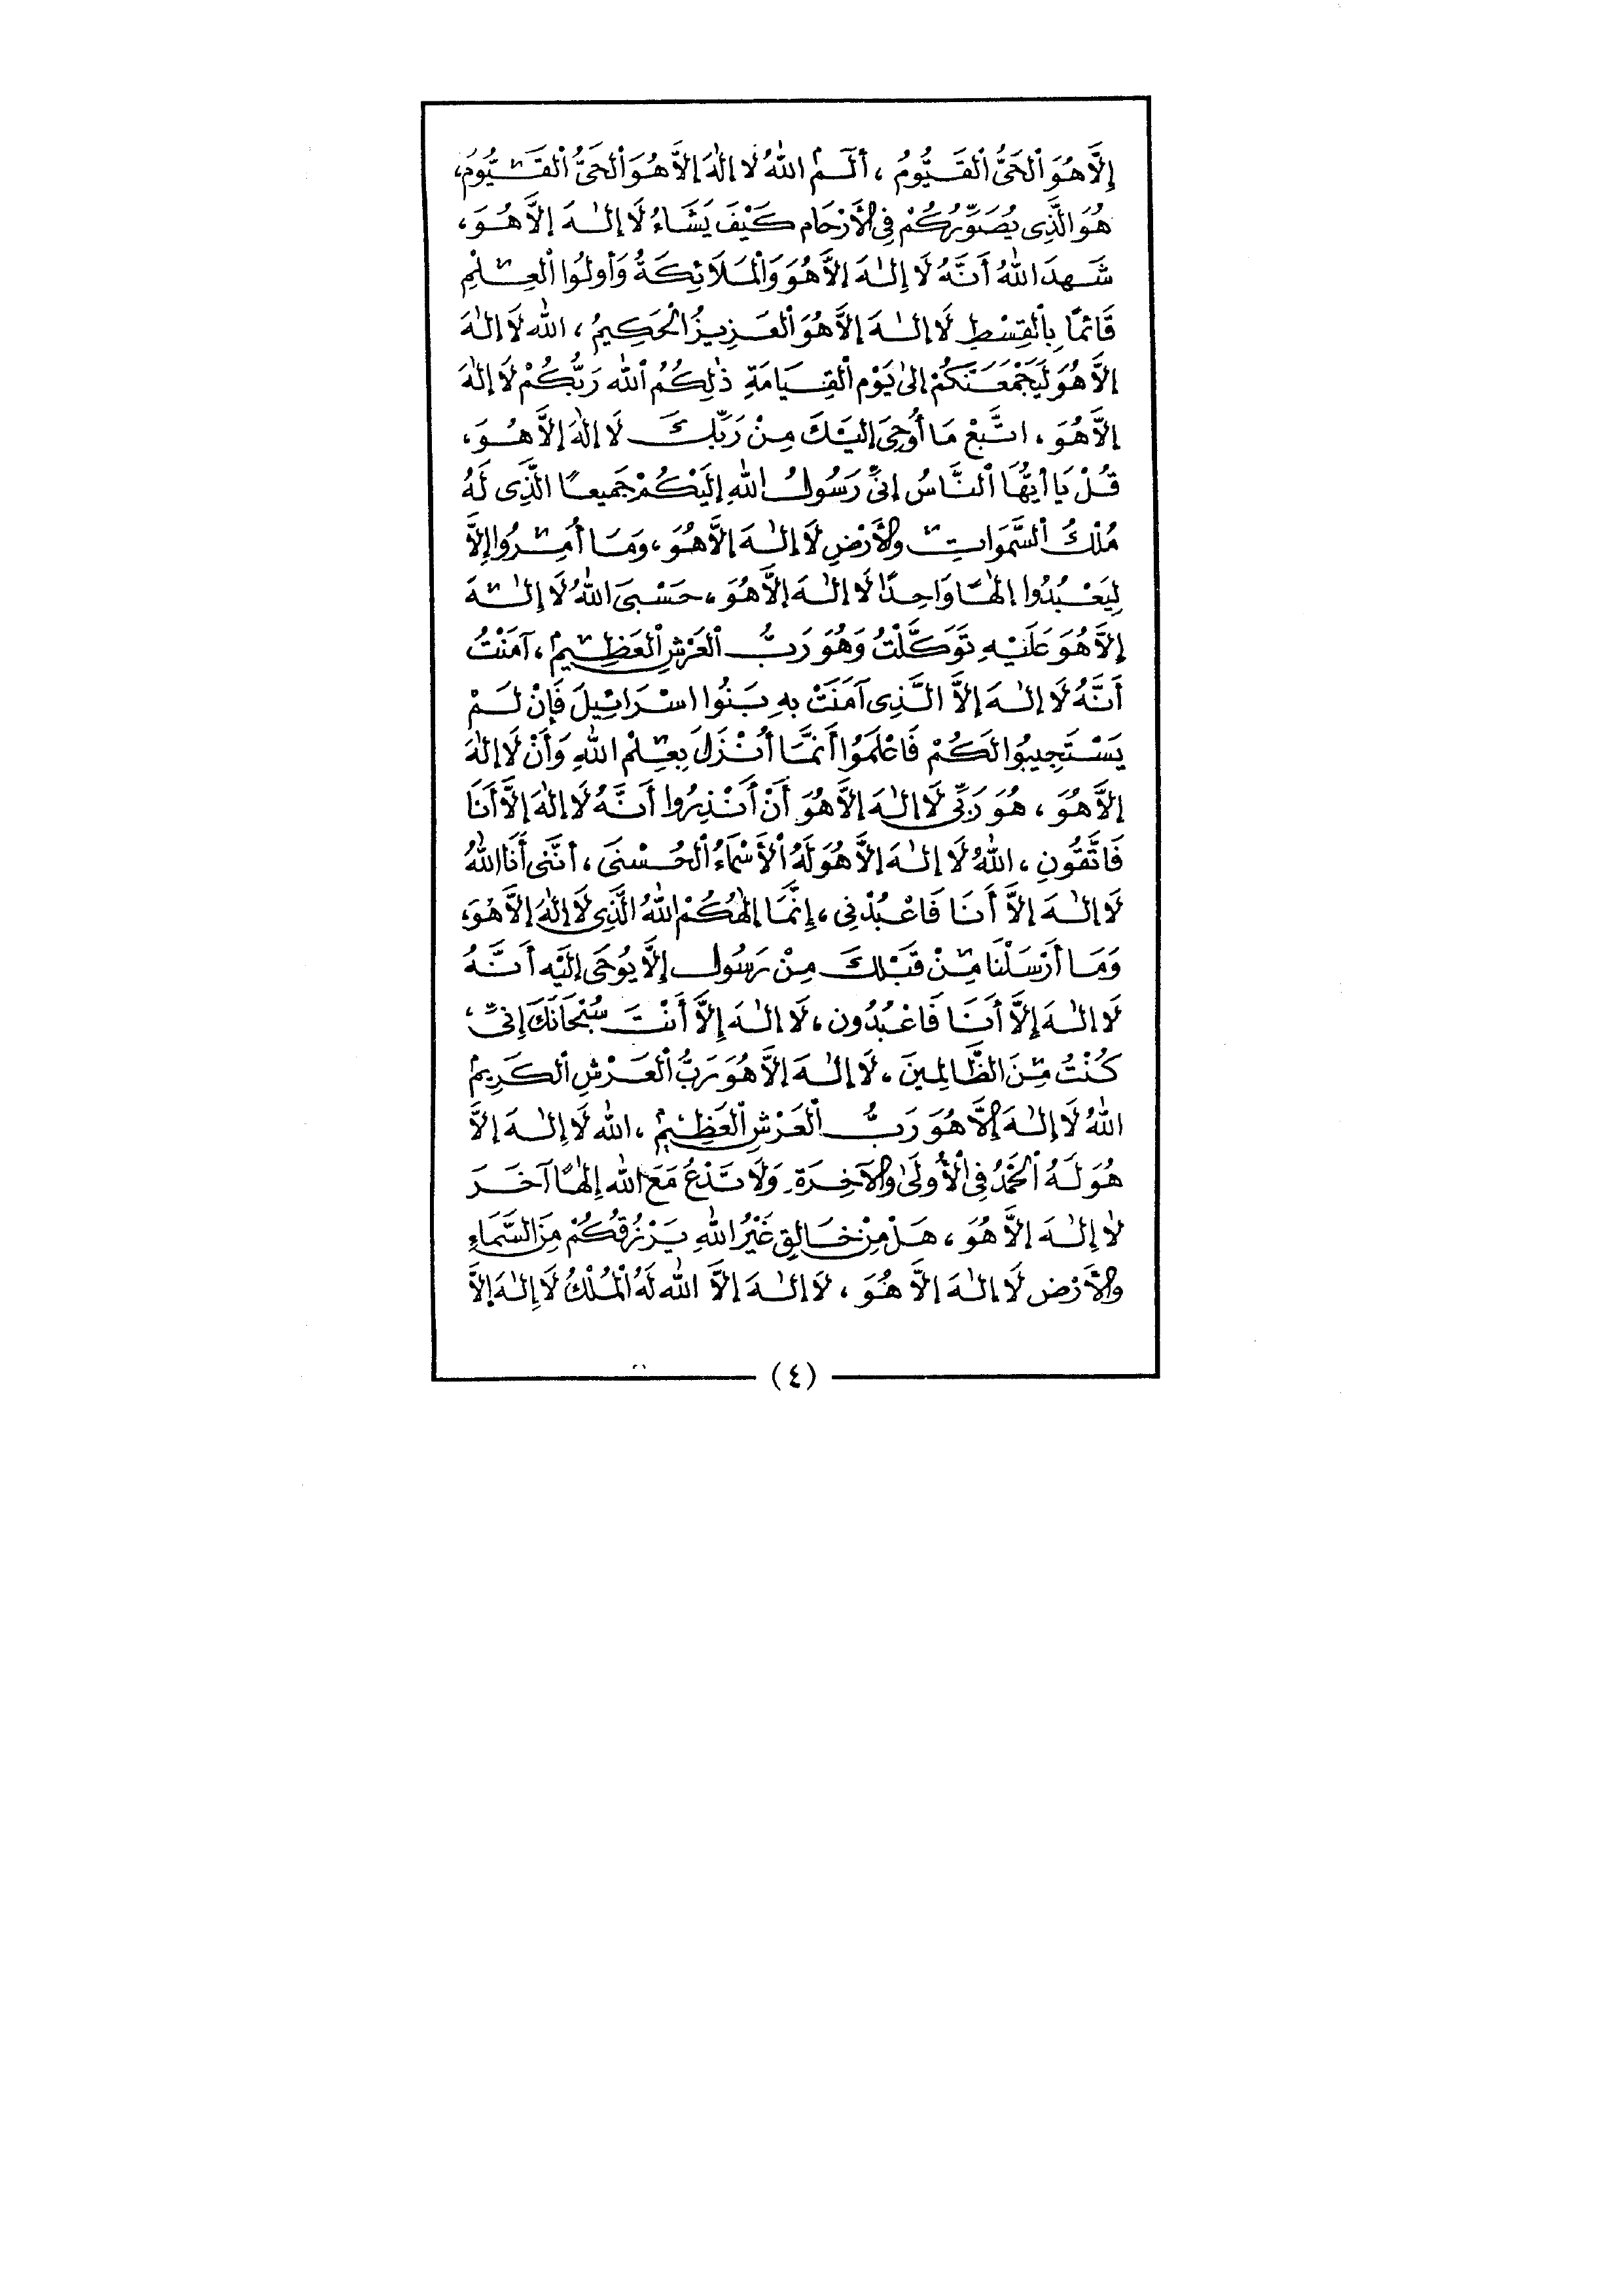 إِلَّا هُوَ ٱلْحَىُّ ٱلْقَيُّومُ ، ألٓمّ اللهُ لَا إِلٰهَ إلَّا هُوَ ٱلْحَىُّ ٱلْقَيُّومُ،
هُوَ الَّذِى يُصَوِّرُكُمْ فِى الْأَرْحَامِ كَيْفَ يَشَاءُ لَا إِلٰهَ إلَّا هُوَ،
شَهِدَ اللهُ أَنَّهُ لَا إِلٰهَ إلَّا هُوَ وَٱلْمَلَائِكَةُ وَأُولُوا ٱلْعِلْمِ
قَائمًا بِٱلْقِسْطِ لَا إلٰهَ إلَّا هُوَ ٱلْعَزِيزُ ٱلْحَكِيمُ ، اللهُ لَا إلٰهَ
إلَّا هُوَ لَيَجْمَعَنَّكُمْ إلىٰ يَوْمِ ٱلْقِيَامَةِ ذٰلِكُمُ ٱللهُ رَبُّكُمْ لَا إلٰهَ
إلَّا هُوَ ، اتَّبِعْ مَا أُوحِىَ إلَيْكَ مِنْ رَبِّكَ لَا إلٰهَ إلَّا هُوَ،
قُلْ يَا أَيُّهَا ٱلنَّاسُ إنِّى رَسُولُ اللهِ إلَيْكُمْ جَمِيعًا الَّذِى لَهُ
مُلْكُ ٱلسَّمَوَاتِ وَالْأَرْضِ لَا إلٰهَ إلَّا هُوَ ، وَمَا أُمِرُوا إِلَّا
لِيَعْبُدُوا إلٰهًا وَاحِدًا لَا إلٰهَ إلَّا هُوَ ، حَسْبِىَ اللهُ لَا إِلٰهَ
إلَّا هُوَ عَلَيْهِ تَوَكَّلْتُ وَهُوَ رَبُّ ٱلْعَرْشِ ٱلْعَظِيمِ ، آمَنْتُ
أَنَّهُ لَا إلٰهَ إلَّا الَّذِى آمَنَتْ بِهِ بَنُوا اسْرَائِيلَ فَإِنْ لَمْ
يَسْتَجِيبُوا لَكُمْ فَاعْلَمُوا أَنَّمَا أُنْزِلَ بِعِلْمِ اللهِ وَأَنْ لَا إلٰهَ
إلَّا هُوَ ، هُوَ رَبِّى لَا إلٰهَ إلَّا هُوَ أَنْ أَنْذِرُوا أَنَّهُ لَا إلٰهَ إلَّا أَنَا
فَاتَّقُونِ ، اللهُ لَا إلٰهَ إلَّا هُوَ لَهُ ٱلْأَسْمَاءُ ٱلْحُسْنَى ، أنَّنِى أَنَا اللهُ
لَا إلٰهَ إلَّا أَنَا فَاعْبُدْنِى ، إِنَّمَا إلٰهُكُمُ اللهُ الَّذِى لَا إلٰهَ إلَّا هُوَ،
وَمَا أَرْسَلْنَا مِنْ قَبْلِكَ مِنْ رَسُولٍ إلَّا يُوحَى إلَيْهِ أَنَّهُ
لَا إلٰهَ إلَّا أَنَا فَاعْبُدُونِ ، لَا إلٰهَ إِلَّا أَنْتَ سُبْحَانَكَ إِنِّى،
كُنْتُ مِنَ الظَّالِمِينَ ، لَا إلٰهَ إلَّا هُوَ رَبُّ ٱلْعَرْشِ ٱلْكَرِيمِ
اللهُ لَا إلٰهَ إِلَّا هُوَ رَبُّ ٱلْعَرْشِ ٱلْعَظِيمِ ، اللهُ لَا إِلٰهَ إلَّا
هُوَ لَهُ ٱلْحَمْدُ فِى ٱلْأُولَىٰ وَالْآخِرَةِ وَلَا تَدْعُ مَعَ اللهِ إِلٰهًا آخَرَ
لَا إلٰهَ إلَّا هُوَ ، هَلْ مِنْ خَالِقٍ غَيْرُ اللهِ يَرْزُقُكُمْ مِنَ السَّمَاءِ
وَالْأَرْضِ لَا إلٰهَ إلَّا هُوَ ، لَا إلٰهَ إلَّا اللهُ لَهُ ٱلْمُلْكُ لَا إِلٰهَ إلَّا
(٤)